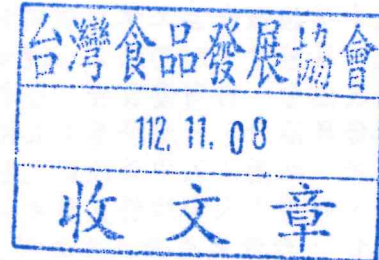 台灣食品發展協會
112. 11. 08
收文章